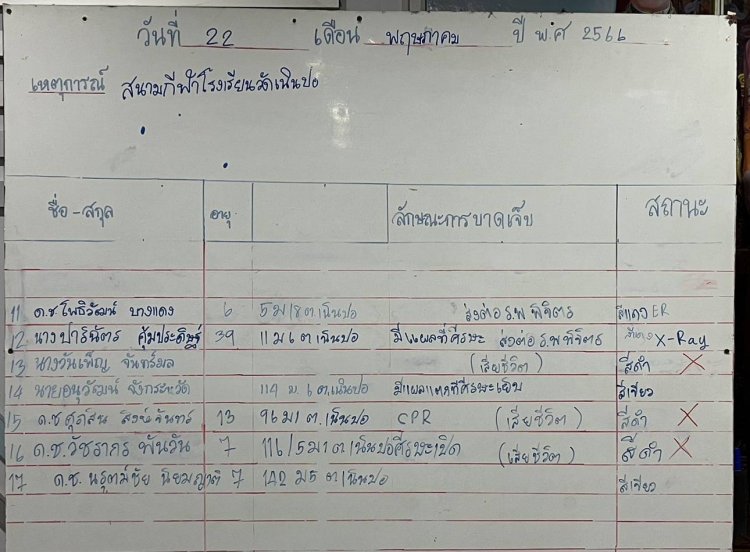 วันที่ 22 เดือน พฤษภาคม ปี พ.ศ 2566
เหตุการณ์ สนามกีฬาโรงเรียนวัดเนินปอ
ชื่อ-สกุล อายุ ลักษณะการบาดเจ็บ สถานะ
11 ด.ช.โพธิวัฒน์ บางแดง 6 5 ม 8 ต.เนินปอ ส่งต่อ ร.พ พิจิตร สีแดง ER
12 นางปาริฉัตร คุ้มประดิษฐ์ 39 11 ม 6 ต.เนินปอ มีแผลที่ศีรษะ ส่งต่อ ร.พ พิจิตร X-Ray
13 นางวันเพ็ญ จันทร์มล (เสียชีวิต) สีดำ X
14 นายอนุวัฒน์ จังกระหวัด 114 ม. 6 ต.เนินปอ มีแผลแตกที่ศีรษะเย็บ สีเขียว
15 ด.ช. สิงห์จันทร์ 13 96 ม 1 ต.เนินปอ CPR (เสียชีวิต) สีดำ X
16 ด.ช.วัชรากร พันวัน 7 116/5 ม 1 ต เนินปอ ศีรษะเปิด (เสียชีวิต) สีดำ X
17 ด.ช. นฤตม์ชัย นิยมญาติ 7 142 ม 5 ต เนินปอ สีเขียว